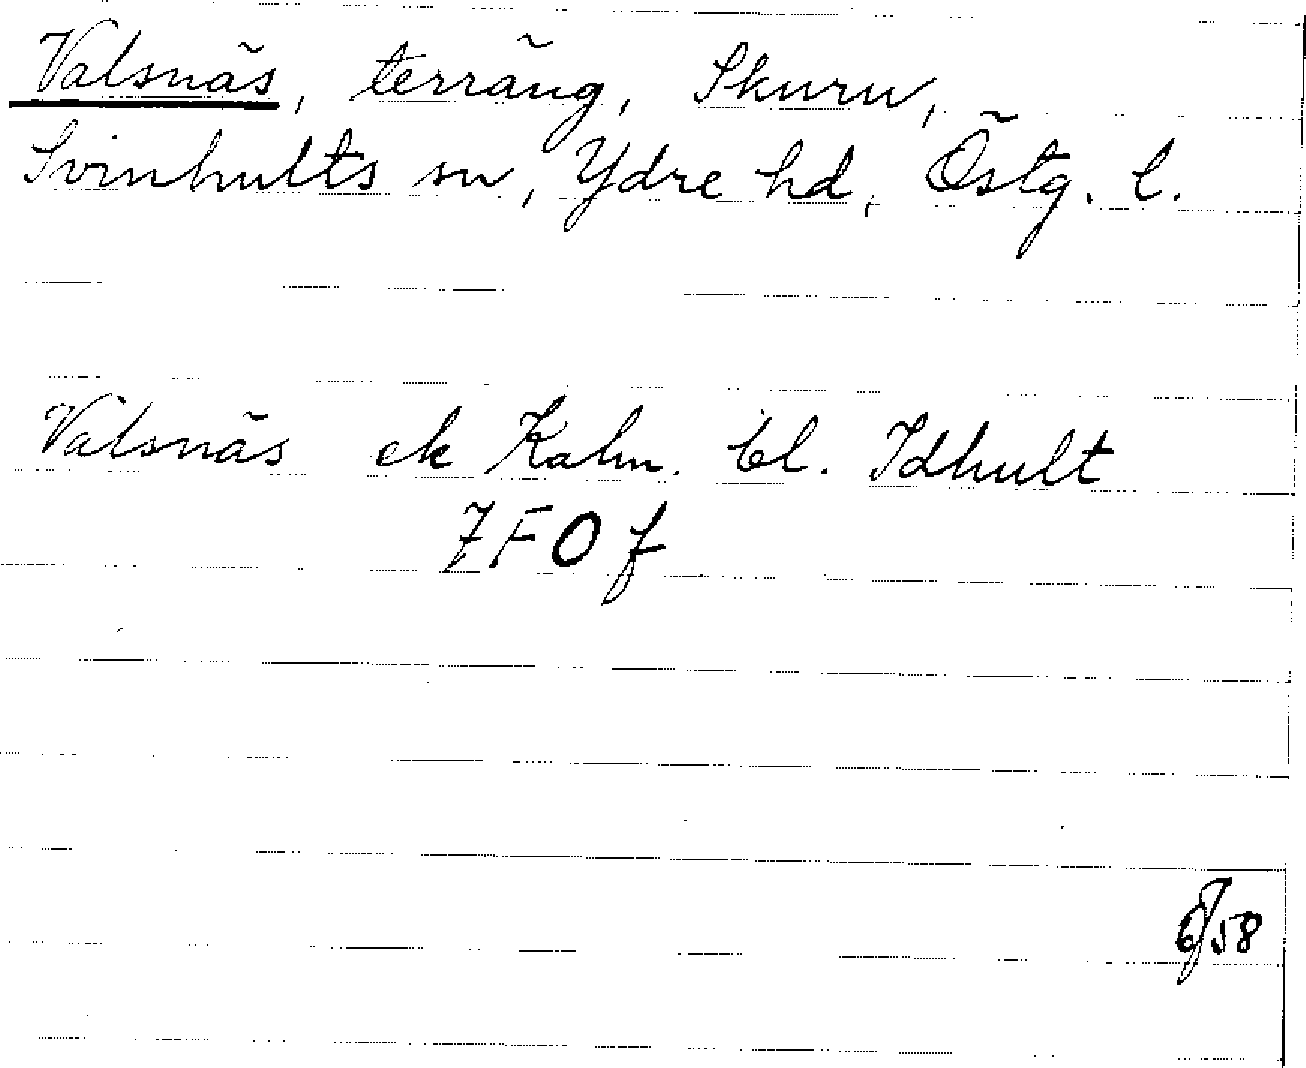 Valsnäs, terräng, Skuru,
Svinhults sn, Ydre hd, Östg. l.
Valsnäs ek Kalm. bl. Idhult
7F0f
58